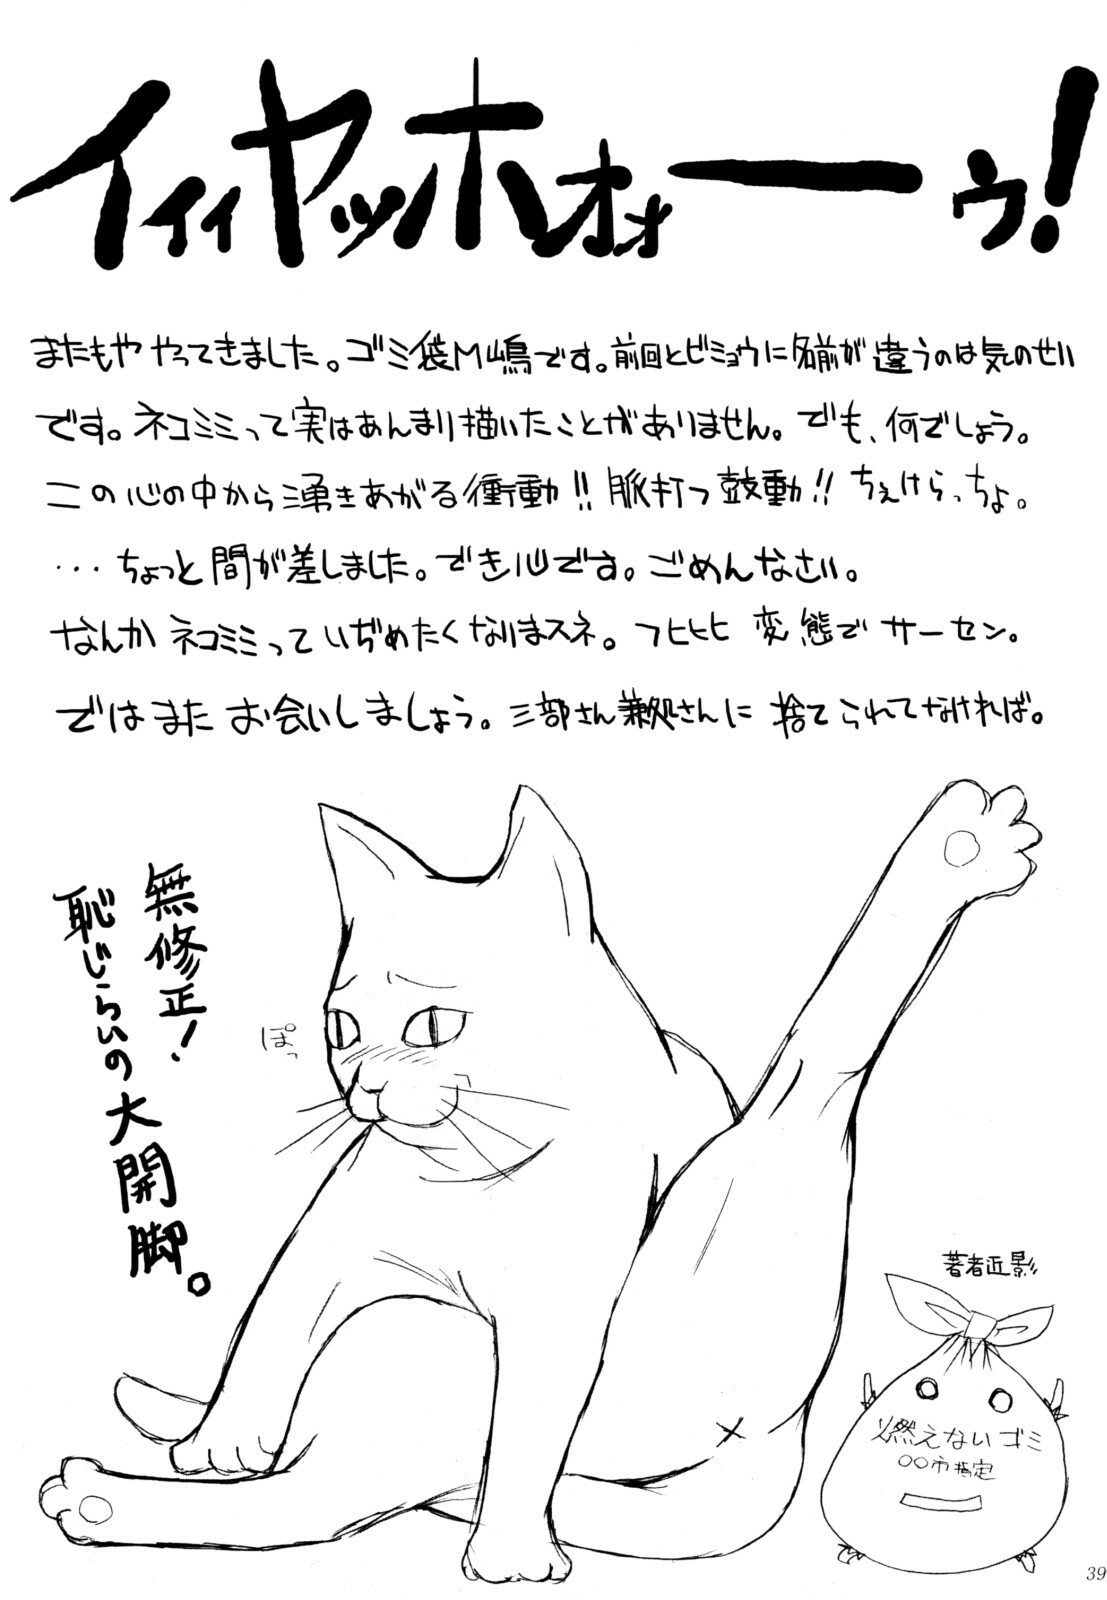 イィィヤッホォォーーゥ!
またもや やってきました。ゴミ袋M嶋です。前回とビミョウに名前が違うのは気のせい
です。ネコミミって実はあんまり描いたことがありません。でも、何でしょう。
この心の中から湧きあがる衝動!!脈打つ鼓動!!ちぇけらっちょ。
・・・ちょっと間が差しました。でき心です。ごめんなさい。
なんかネコミミっていぢめたくなりまスネ。フヒヒヒ 変態でサーセン。
ではまたお会いしましょう。三部さん兼処さんに捨てられてなければ。
無修正!
恥じらいの大開脚。
ぽっ
著者近影
燃えないゴミ
○○市指定
39